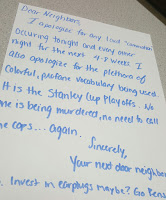 Dear Neighbors,
I apologize for any loud "commotion"
occuring tonight and every other
night for the next 4-8 weeks. I
also apologize for the plethora of
colorful, profane vocabulary being used.
It is the Stanley Cup Playoffs. No
one is being murdered, no need to call
the cops... again.
Sincerely,
Your next door neighbor
Invest in earplugs maybe? Go